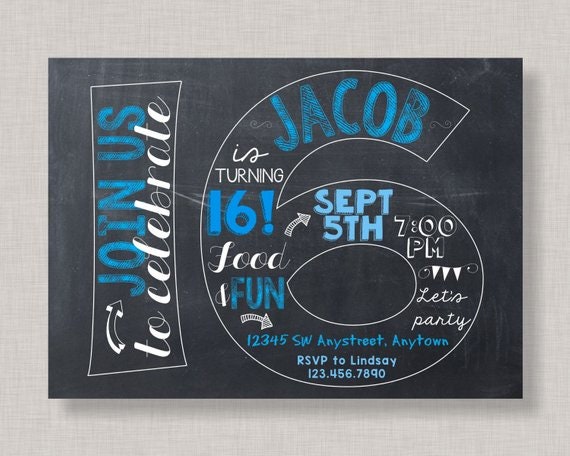 JOIN US
to celebrate
JACOB
is
TURNING
16!
Food
& FUN
SEPT
5TH
7:00
PM
Let's
party
12345 SW Anystreet, Anytown
RSVP to Lindsay
123.456.7890